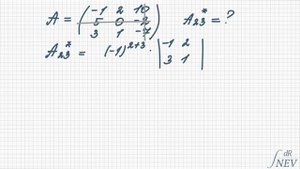 A = (-1 2 10
5 0 -2
3 1 -7) A₂₃* = ?
A₂₃* = (-1)²⁺³ · |-1 2
3 1|
∫ dR
NEV